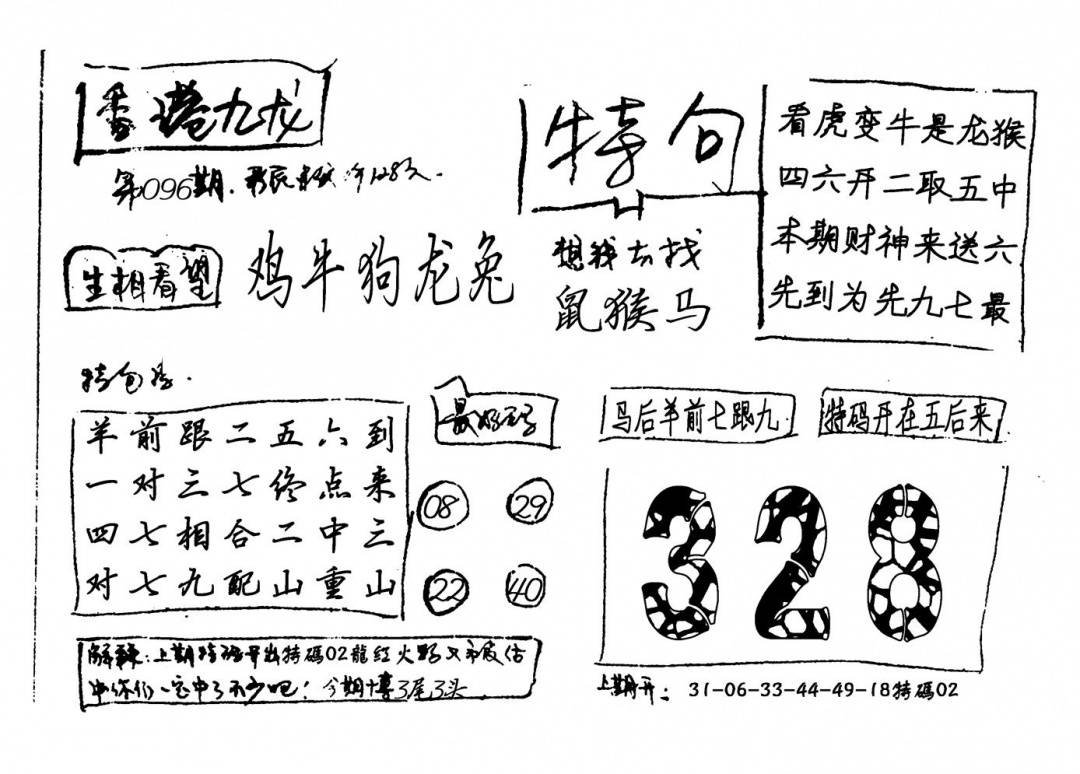 香港九龙
第096期.
特句
看虎变牛是龙猴
四六开二取五中
本期财神来送六
先到为先九七最
生相看望
鸡牛狗龙兔
想我去找
鼠猴马
羊前跟二五六到
一对三七终点来
四七相合二中三
对七九配山重山
08 29
22 40
马后羊前七跟九
特码开在五后来
328
上期特碼开出特碼02龍红火
中你们一定中了不少吧！今期博3尾3头
上期开： 31-06-33-44-49-18特碼02